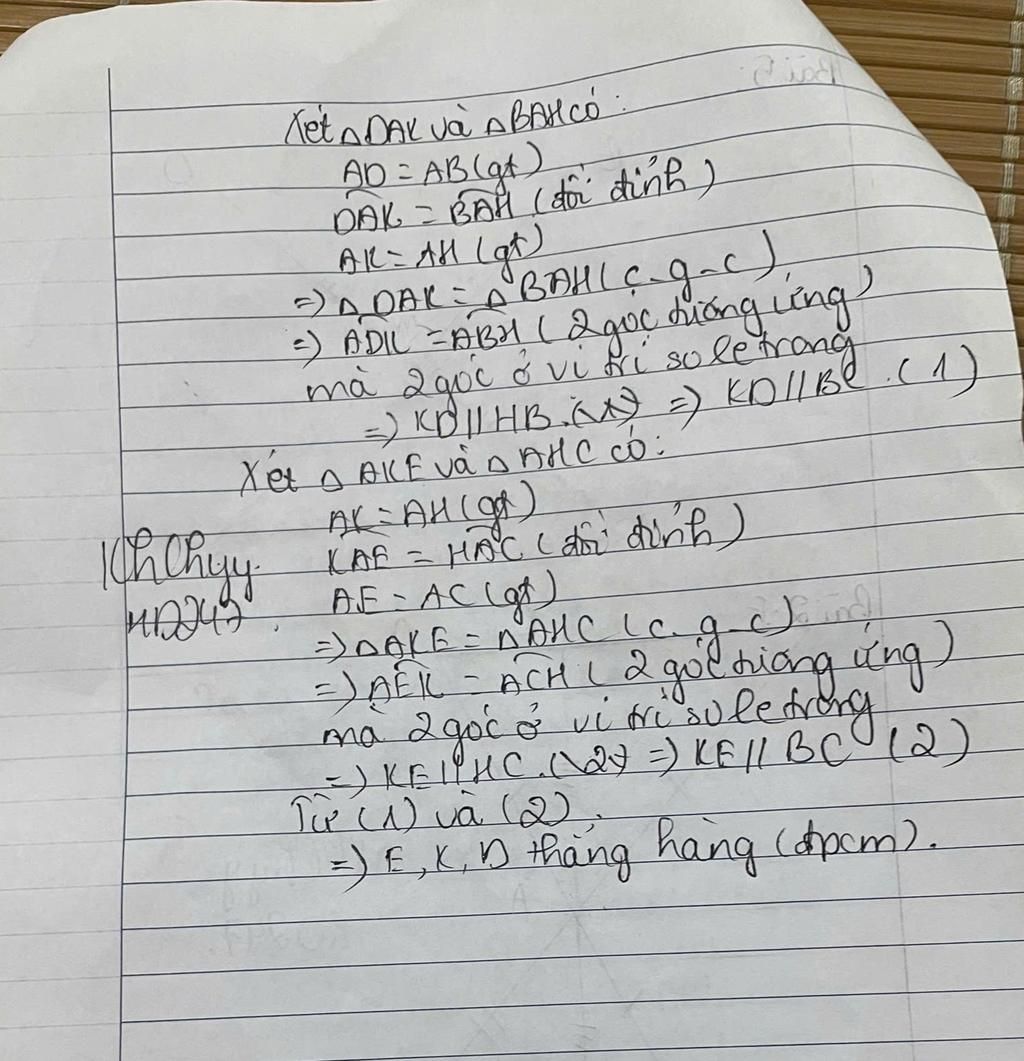 Xét △DAK và △BAH có:
AD = AB (gt)
DAK = BAH (đối đỉnh)
AK = AH (gt)
=> △DAK = △BAH (c.g-c)
=> ADK = ABH (2 góc tương ứng)
mà 2 góc ở vị trí so le trong
=> KD // HB. => KD // BC. (1)
Xét △AKE và △AHC có:
AK = AH (gt)
KAE = HAC (đối đỉnh)
AE = AC (gt)
=> △AKE = △AHC (c.g-c)
=> AEK = ACH (2 góc tương ứng)
mà 2 góc ở vị trí so le trong
=> KE // HC. => KE // BC (2)
Từ (1) và (2).
=> E, K, D thẳng hàng (đpcm).